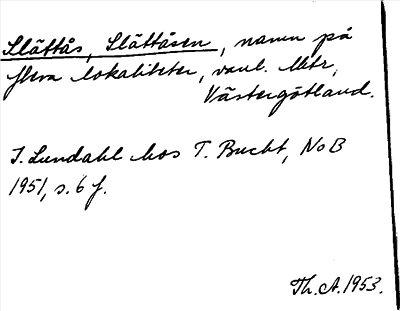 Slättås, Slättåsen, namn på
flera lokaliteter, vanl. lättr,
Västergötland.
I. Lundahl hos T. Bucht, NoB
1951, s. 6 f.
Th. A. 1953.